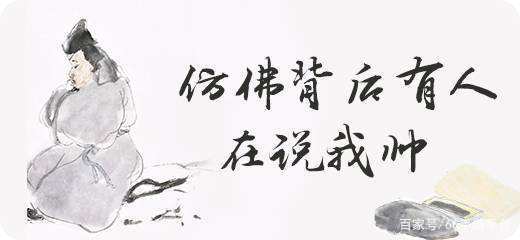 仿佛背后有人
在说我帅
百家号/